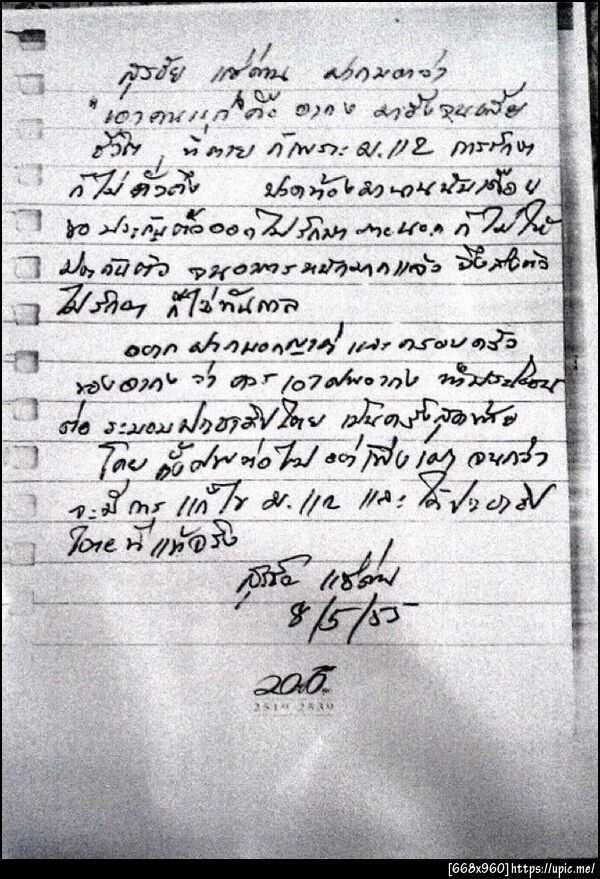 สุรชัย แซ่ด่าน ฝากบอกว่า
"เอาคนแก่" คือ อากง มาขังจนเสีย
ชีวิต ที่ตาย ก็เพราะ ม.112 การรักษา
ก็ไม่ทั่วถึง ปวดท้องมานานนับเดือน
ขอประกันตัวออกไปรักษาภายนอก ก็ไม่ให้
ประกันตัว จนอาการหนักมากแล้ว จึงส่งตัว
ไปรักษา ก็ไม่ทันกาล
อยากฝากบอกญาติ และครอบครัว
ของอากง ว่า ควรเอาศพอากง ทำประโยชน์
ต่อระบอบประชาธิปไตย เป็นครั้งสุดท้าย
โดย ตั้งศพต่อไป อย่าเพิ่งเผา จนกว่า
จะมีการ แก้ไข ม.112 และได้ประชาธิป
ไตยที่แท้จริง
สุรชัย แซ่ด่าน
8/5/55
2519 2539
[668x960]https://upic.me/